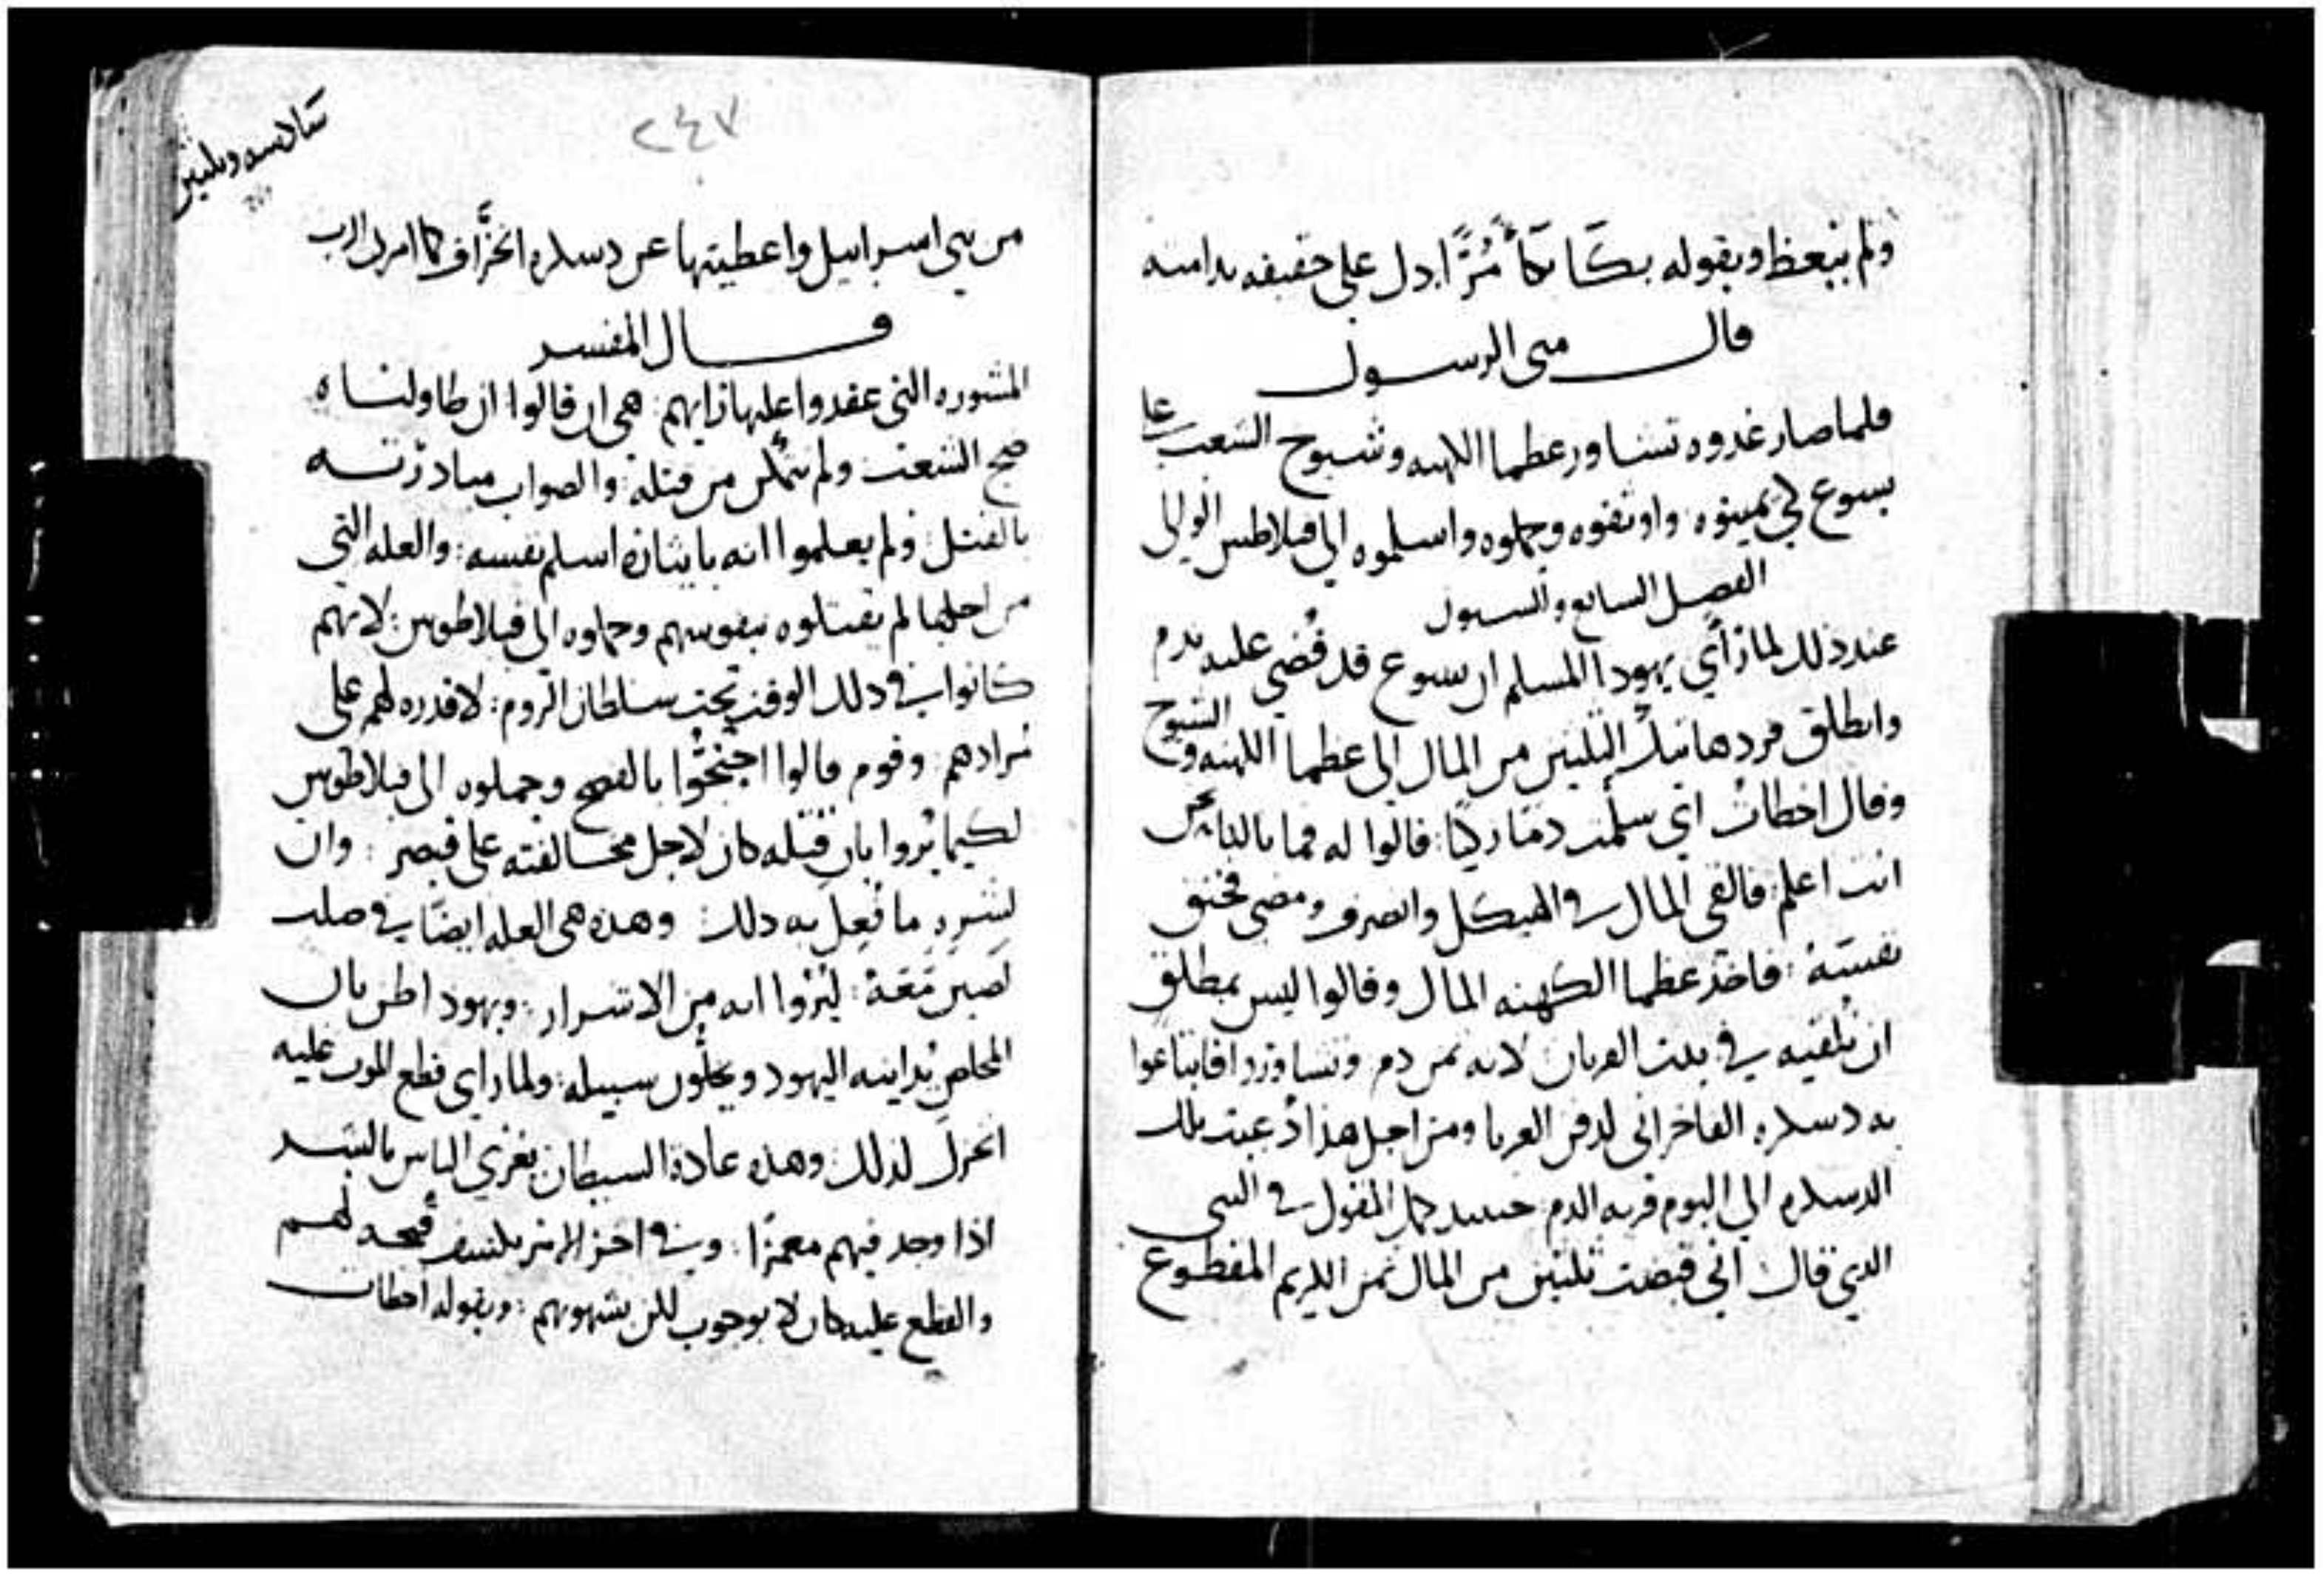 ولم يتعظ وبقوله بكا بكاً مُرًّا دل على حقيقه ندامته
قال متى الرسول
فلما صار غدوه تشاور عظما الكهنه وشيوخ الشعب على
يسوع لكي يميتوه واوثقوه وحملوه واسلموه الي فيلاطس الوالي
الفصل السابع والستون
عند ذلك لما رأي يهودا المسلم ان يسوع قد قُضي عليه ندم
وانطلق فرد ها تيك الثلثين من المال الي عظما الكهنه والشيوخ
وقال اخطات اني سلمت دمًا زكيًا: قالوا له فما بالنا نحن
انت اعلم: فالقى المال في الهيكل وانصرف ومضى فخنق
نفسَهُ: فاخذ عظما الكهنه المال وقالوا ليس بمطلق
ان نُلقيه في بيت القربان لانه ثمن دم وتشاوروا فابتاعوا
به دسكره الفاخراني لدفن الغربا ومن اجل هذا دُعيت تلك
الدسكره الي اليوم قريه الدم حينيد كمل المقول في النبي
الذي قال اني قبضت ثلثين من المال ثمن الكريم المقطوع
٢٤٧
من بني اسراييل واعطيتها عن دسكره الخزّاف كما امرني الرب
قال المفسر
المشوره التي عقدوا عليها رايهم: هي ان قالوا ان طاولناه
ضج الشعب ولم نتمكن من قتله: والصواب مبادرته
بالقتل: ولم يعلموا انه بايثاره اسلم نفسه: والعله التي
من اجلها لم يقتلوه بنفوسهم وحملوه الى فيلاطوس: لانهم
كانوا في ذلك الوقت تحت سلطان الروم: لا قدره لهم على
مُرادهم: وقوم قالوا احتجّوا بالفصح وحملوه الى فيلاطوس
لكيما يُروا بان قتله كان لاجل مخالفته على قيصر: وان
لشره ما فُعِل به ذلك: وهذه هي العله ايضًا في صلب
لصين مَعَهُ: ليُرُوا انه من الاشرار: ويهودا ظن بان
المخاصِ اليهود ويخلّون سبيله: ولما راى قطع الموت عليه
انخزل لذلك: وهذه عادة الشيطان يغري الناس بالشر
اذا وجد فيهم مغمزًا: وفي اخر الامر يكشف قبحه لهم
والقطع عليه كان لا بوجوب لكن بشهوتهم: وبقوله اخطات